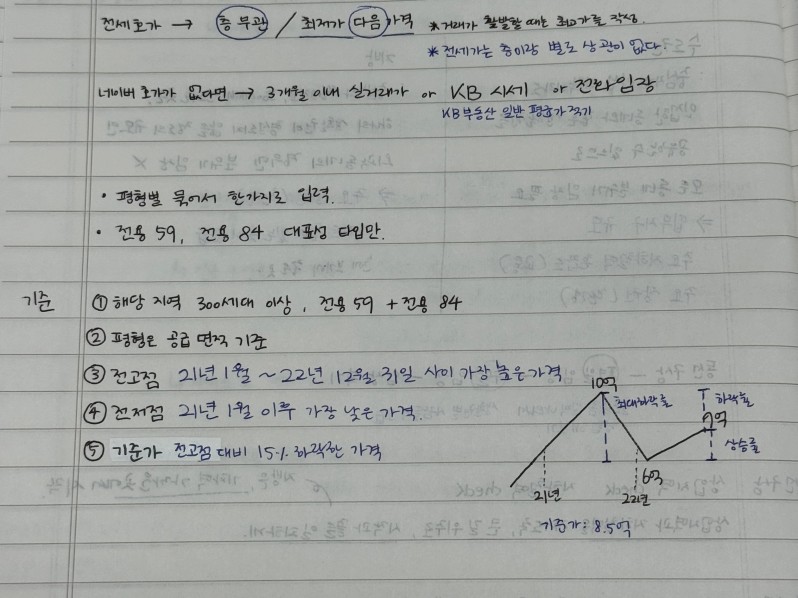 전세호가 → 층 무관 / 최저가 다음 가격 * 거래가 활발할 때는 최고가를 작성.
* 전세가는 층이랑 별로 상관이 없다.
네이버 호가가 없다면 → 3개월 이내 실거래가 or KB 시세 or 전화임장
KB부동산 일반 평균가 적기
· 평형별 묶어서 한가지로 입력.
· 전용 59, 전용 84 대표성 타입만.
기준 ① 해당 지역 300세대 이상, 전용 59 + 전용 84
② 평형은 공급 면적 기준
③ 전고점 21년 1월 ~ 22년 12월 31일 사이 가장 높은 가격
④ 전저점 21년 1월 이후 가장 낮은 가격.
⑤ 기준가 전고점 대비 15% 하락한 가격
10억
최대하락률
하락률
7억
상승률
6억
21년
22년
기준가: 8.5억